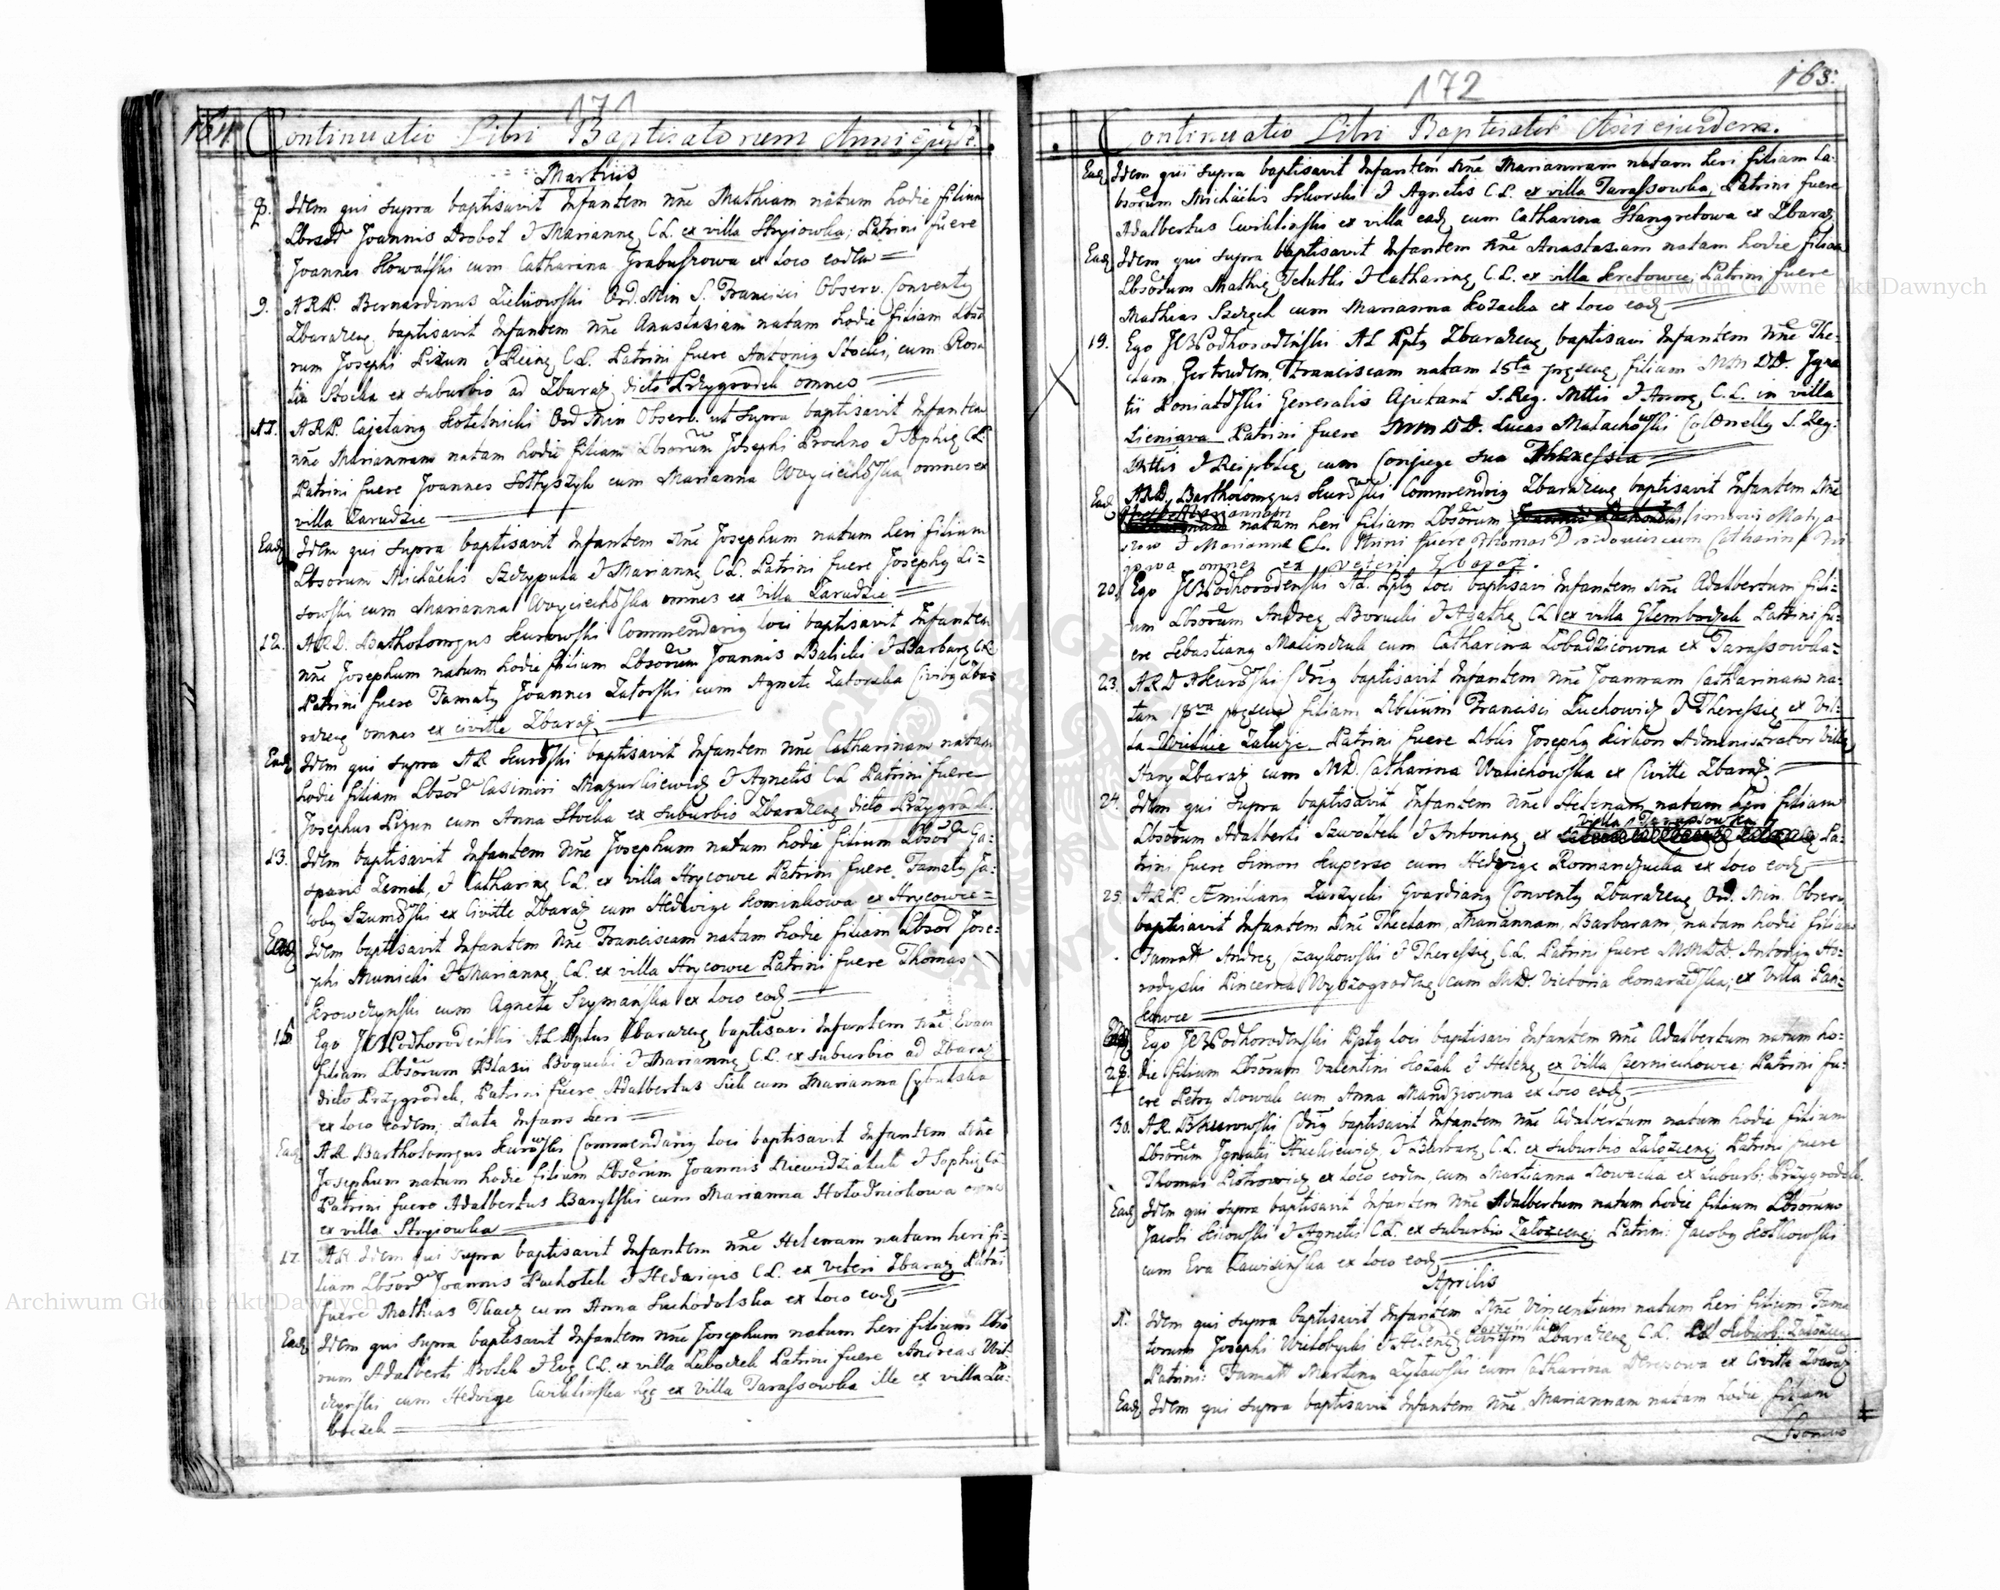 171
164. Continuatio Libri Baptisatorum Anni ejusd.
Martius
8. Idem qui supra baptisavit Infantem nne Mathiam natum hodie filium
Lbrsor Joannis Drobot & Mariannę C.L. ex villa Stryiowka; Patrini fuere
Joannes Kowalski cum Catharina Grabussowa ex loco eodm
9. A.R.P. Bernardinus Ord. Min S. Francisci Observ. Conventq
Zbarazeng baptisavit Infantem nne Anastasiam natam hodie filiam Lbso
rum Josephi Lizun & Reginę C.L. Patrini fuere Antonig Stocki, cum Rosa
lia Stocka ex suburbio ad Zbaraz dicto Przygrodek omnes
11. A.R.P. Cajetang Kotelnicki Ord Min Observ. ut supra baptisavit Infantem
nne Mariannam natam hodie filiam Lbsorum Josephi Prochno & Sophię C.L.
Patrini fuere Joannes Sołtyszyk cum Marianna Woyciechoska omnes ex
villa Zarudzie
Eadq Idem qui supra baptisavit Infantem nne Josephum natum heri filium
Lbsorum Michaelis Szkrypuka & Mariannę C.L. Patrini fuere Josephg Li-
sowski cum Marianna Woyciechoska omnes ex villa Zarudzie
12. A.R.D. Bartholomęus Kurowski Commendarig loci baptisavit Infantem
nne Josephum natum hodie filium Lbsorum Joannis Balicki & Barbarę C.L.
Patrini fuere Famatq Joannes Zatorski cum Agnete Zatorska Civibg Zba-
razeng omnes ex civitte Zbaraz
Eadq Idem qui supra AR Kuroski baptisavit Infantem nne Catharinam natam
hodie filiam Lbsor Casimiri Mazurkiewicz & Agnetis C.L. Patrini fuere
Josephus Lizun cum Anna Stocka ex suburbio Zbarazeng dicto Przygrodek.
13. Idem baptisavit Infantem nne Josephum natum hodie filium Lbsor Ga-
sparis Zemik, & Catharinę C.L. ex villa Hrycowce Patrini fuere, Famatq Ja-
cobg Szumoski ex Civitte Zbaraz cum Hedvige Kominkowa ex Hrycowce
Eadq Idem baptisavit Infantem nne Franciscam natam hodie filiam Lbsor Jose-
phi Municki & Mariannę, C.L. ex villa Hrycowce Patrini fuere Thomas
cum Agnete Szymanska ex loco eodq
16. Ego JWPodhorodenski AL Pptus Zbarazeng baptisavi Infantem nne Evam
filiam Lbsorum Blasii Bogucki & Mariannę C.L. ex suburbio ad Zbaraz
dicto Przygrodek, Patrini fuere Adalbertus Siek cum Marianna Cybulska
ex loco eodem, Nata Infans heri
Eadq AR Bartholomęus Kuroski Commendarig loci baptisavit Infantem nne
Josephum natum hodie filium Lbsorum Joannis Niewidziatuk & Sophię C.L.
Patrini fuere Adalbertus Barylski cum Marianna Hołodniokowa omnes
ex villa Stryiowka
17. AR Idem qui supra baptisavit Infantem nne Helenam natam heri fi-
liam Lbsor Joannis Puchotek & Hedvigis C.L. ex veteri Zbaraz Patrini
fuere Mathias Tkacz cum Anna Suchodolska ex loco eodq
Eadq Idem qui supra baptisavit Infantem nne Josephum natum heri filium Lbso
rum Adalberti Brotek & Evę C.L. ex villa Lubockek Patrini fuere Andreas
cum Hedvige Cwiklinska hęc ex villa Tarassowka ille ex villa Lu-
boczek
172
165.
Continuatio Libri Baptisator Anni eiusdem.
Eadq Idem qui supra baptisavit Infantem nne Mariannam natam heri filiam La-
borum Michaelis Sikorski & Agnetis C.L. ex villa Tarassowka, Patrini fuere
Adalbertus Cwiklinski ex villa eadq cum Catharina Hangretowa ex Zbaraz
Eadq Idem qui supra baptisavit Infantem nne Anastasiam natam hodie filiam
Lbsorum Mathię & Catharinę C.L. ex villa Kretowce Patrini fuere
Mathias cum Marianna Kozacka ex loco eodq
19. Ego JWPodhorodenski AL Pptq Zbarazeng baptisavi Infantem nne The-
clam, Gertrudem, Franciscam natam 15ta pręseng, filiam MM DD. Igna
tii Poniatoski Generalis Ajutant S. Reg. Mttis & Annę, C.L. in villa
Sieniawa Patrini fuere MM DD. Lucas Małachoski Colonelly S. Reg:
Mttis & Reipblię, cum Conjuge sua Theressia
Eadq A.R.D. Bartholomęus Kuroski Commendarig Zbarazeng baptisavit Infantem nne
Mariannam natam heri filiam Lbsorum Simonis
& Marianna C.L. Ptrini fuere Thomas cum Catharina
omnes ex veteri Zbaraz.
20. Ego JWPodhorodenski AL Pptq loci baptisavi Infantem nne Adalbertum fili-
um Lbsorum Andreę Borucki & Agathę, C.L. ex villa Głemboczek Patrini fu-
ere Sebastiang Malinczuk cum Catharina Łobadzicowna ex Tarassowka
23. A.R.D. BKuroski Cdrig baptisavit Infantem nne Joannam Catharinam na-
tam 18va pręseng filiam Nblium Francisci Zuchowicz & Theressię ex Vil-
la Wielkie Załuże Patrini fuere Nblis Josephg Kirkor Administrator Villę
Stary Zbaraz cum MD. Catharina Walichowska ex Civitte Zbaraz
24. Idem qui supra baptisavit Infantem nne Helenam natam heri filiam
Lbsorum Adalberti Szwotek & Antoninę, ex Villa Tarassowka Pa-
trini fuere Simon Kuperso cum Hedvige Romanczucka ex loco eodq
25. A.R.P. Æmiliang Gvardiang Conventq Zbarazeng Ord. Min. Observ.
baptisavit Infantem nne Theclam, Mariannam, Barbaram, natam hodie filiam
Famatt Andreę Czaykowski & Theressię, C.L. Patrini fuere MMDD. Antonig Ho-
rodyski Pincerna Wyszogrodeng cum MD. Victoria Konarzoska, ex Villa Pan-
kowce
28. Ego JWPodhorodenski Pptq loci baptisavi Infantem nne Adalbertum natum ho-
die filium Lbsorum Valentini Kozak & Helenę ex Villa Czerniechowce; Patrini fu-
ere Petrg Nowak cum Anna Mandziowna ex loco eodq
30. A.R. BKurowski Cdrig baptisavit Infantem nne Adalbertum natum hodie filium
Lbsorum Ignatii Huckiewicz & Barbarę C.L. ex suburbio Załozceng Patrini fuere
Thomas Piotrowicz ex loco eodem, cum Marianna Nowacka ex suburb: Przygrodek.
Eadq Idem qui supra baptisavit Infantem nne Adalbertum natum hodie filium Lbsorum
Jacobi Kiiowski & Agnetis C.L. ex suburbio Załozceng; Patrini: Jacobg Kotkowski
cum Eva ex loco eodq
Aprilis
1. Idem qui supra baptisavit Infantem nne Vincentium natum heri filium Fama
torum Josephi Wielobycki & Helenę Civium Zbarazeng C.L. ex Suburb: Załozceng
Patrini: Famatt Marting Zylawski cum Catharina ex Civitte Zbaraz
Eadq Idem qui supra baptisavit Infantem nne Mariannam natam hodie filiam
Lbsorum
Archiwum Główne Akt Dawnych
Archiwum Główne Akt Dawnych